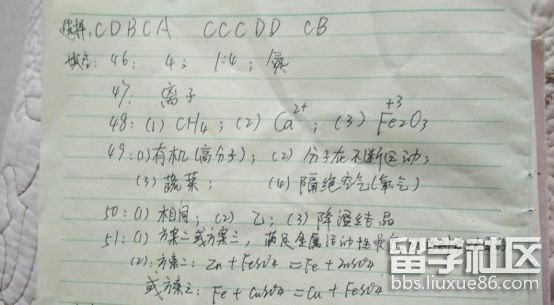 选择: CDBCA CCCDD CB
填空: 46: 4; 1:4; 氮
47: 离子
48: (1) CH4; (2) Ca2+; (3) +3 Fe2O3
49: (1) 有机(高分子); (2) 分子在不断运动;
(3) 蔬菜; (4) 隔绝空气(氧气)
50: (1) 相同; (2) 乙; (3) 降温结晶
51: (1) 方案二或方案三, 满足金属活动性
(2): 方案二: Zn + FeSO4 = Fe + ZnSO4
或方案三: Fe + CuSO4 = Cu + FeSO4
留学社区
bbs.liuxue86.com